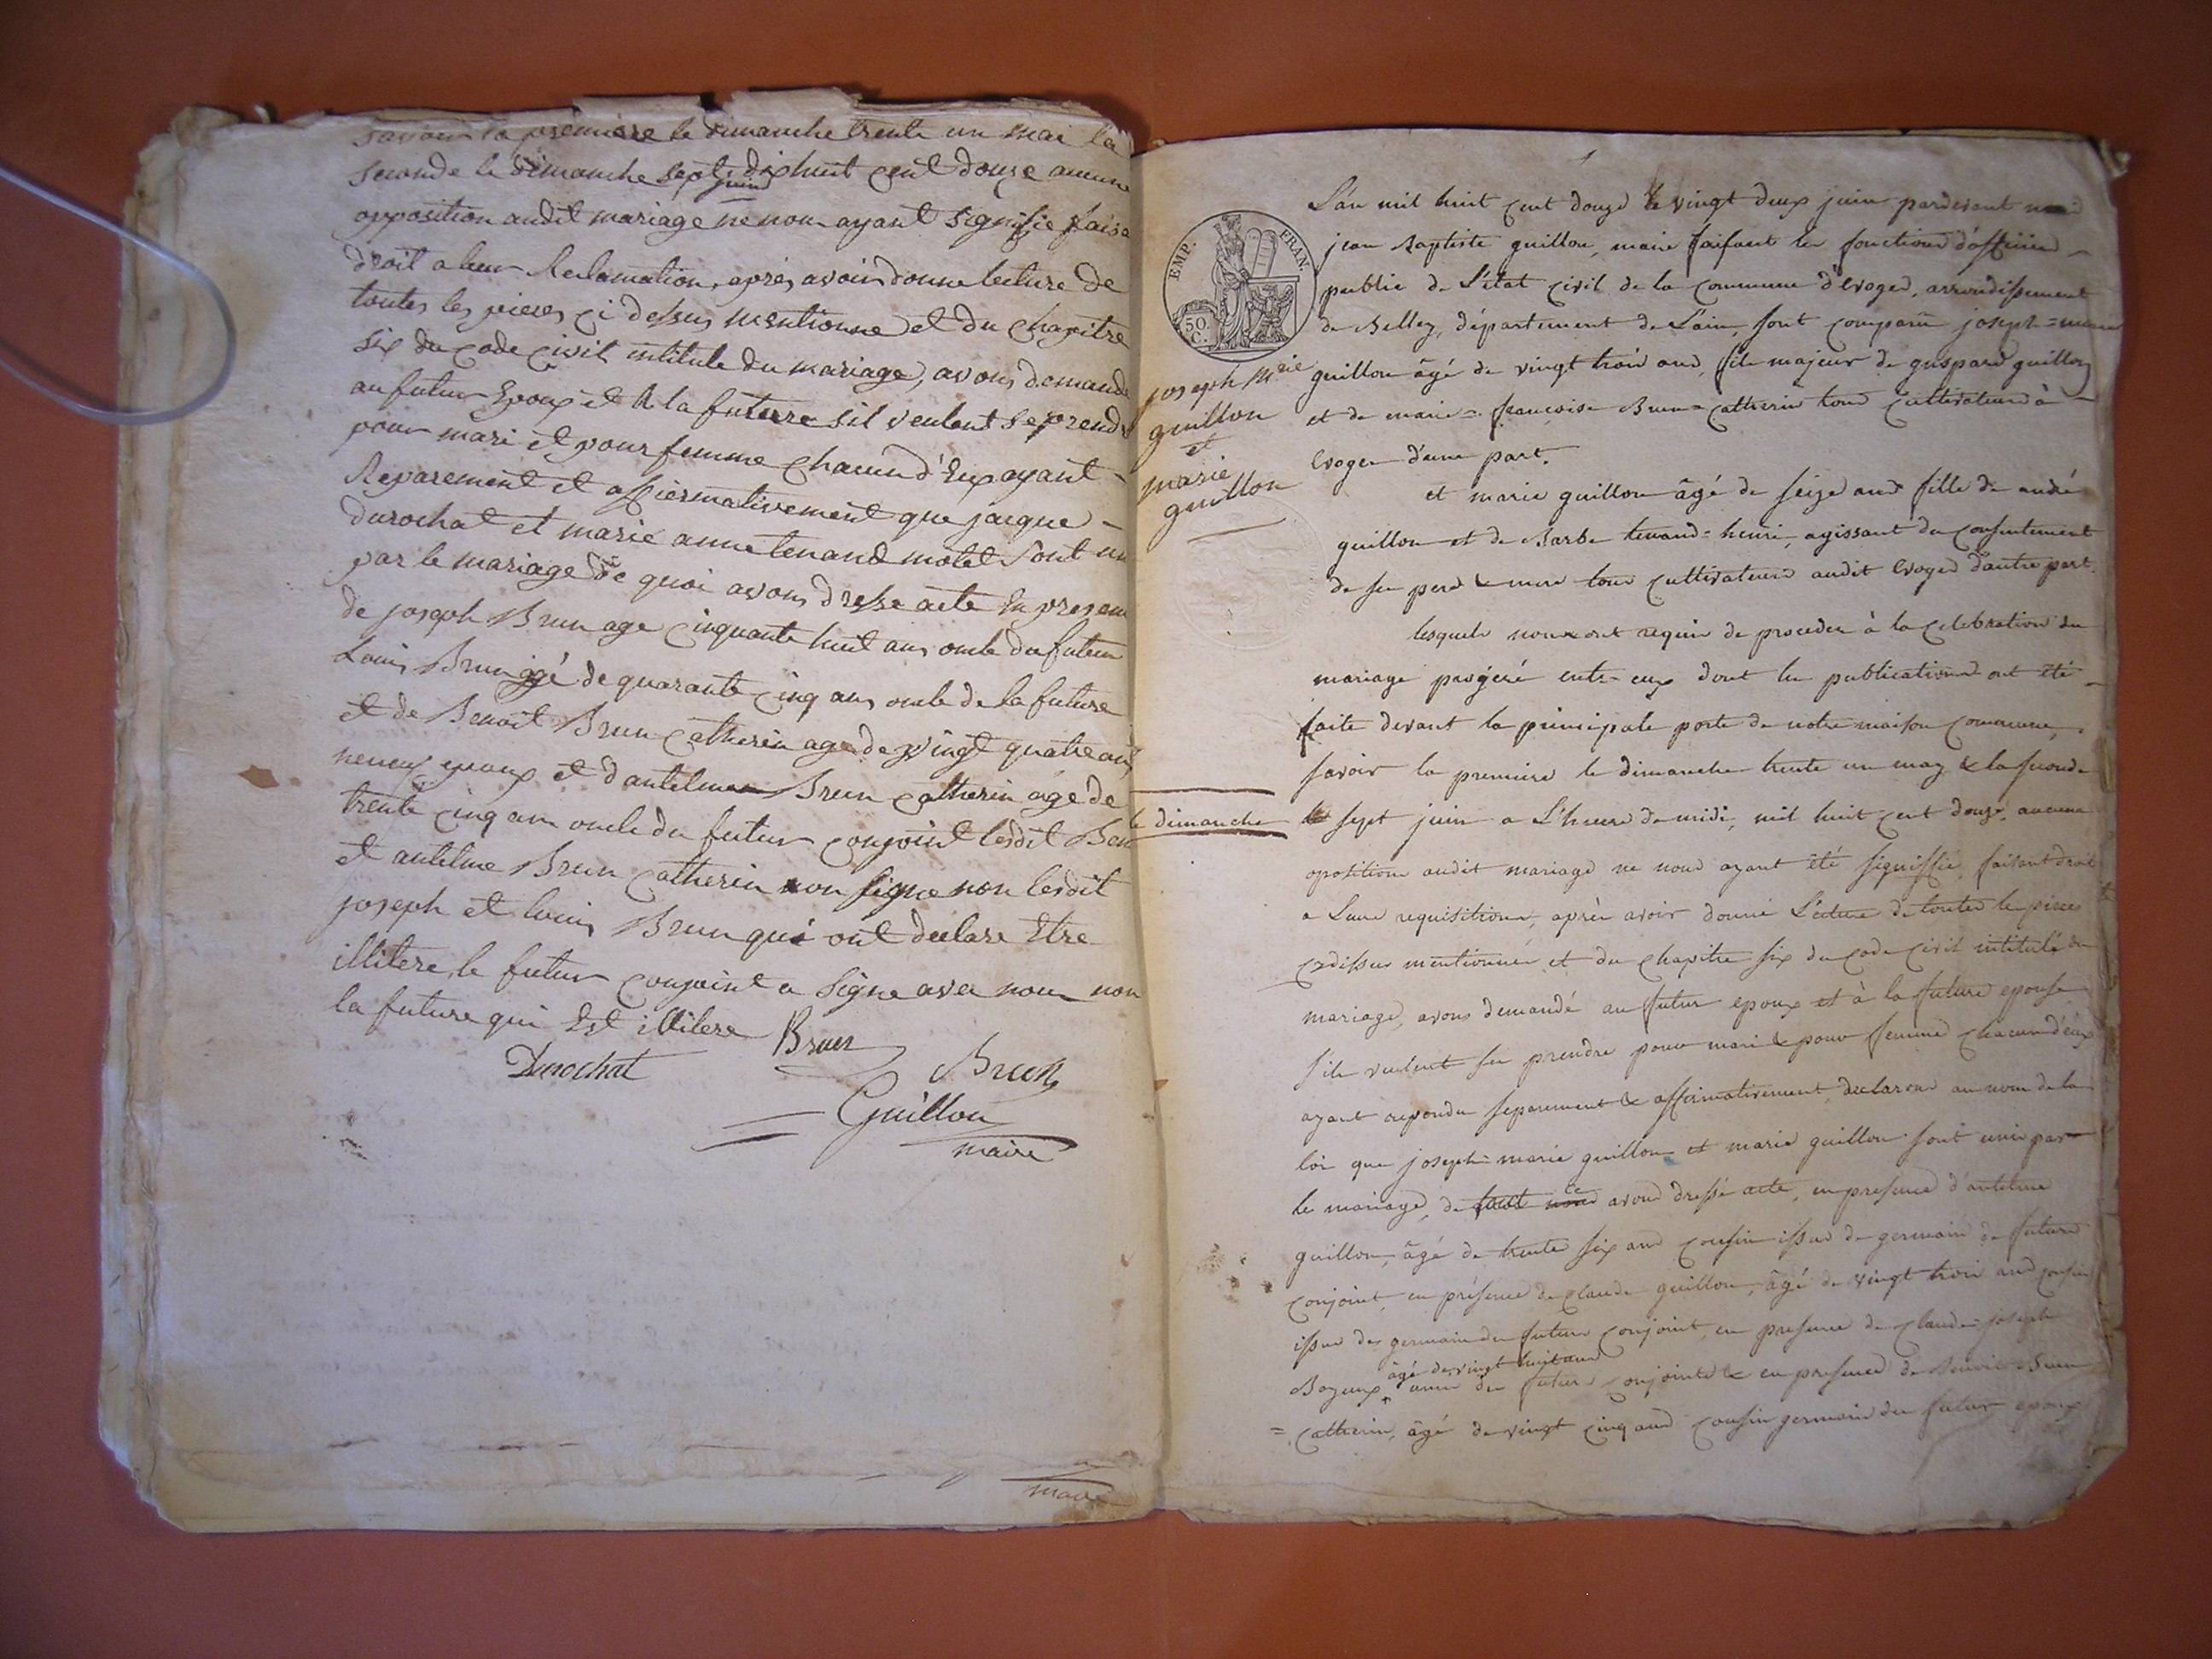 savoir la première le dimanche trente un mai la
seconde le dimanche sept juin dix huit cent douze aucune
opposition audit mariage ne nous ayant signifie faisa
droit a leur Reclamation, après avoir donne lecture de
toutes les pieces ci dessus mentionne et du Chapitre
six du code civil intitule du mariage, avons demande
au futur Epoux et A la future sil veulent se prendr
pour mari et pour femme chacun d'Eux ayant
Reparement et affiermativement que jacque
durochat et marie anne tenand motel sont un
par le mariage de quoi avons dresse acte En presen
de joseph Brun age cinquante huit ans oncle du futeur
Louis Brun agé de quarante cinq ans oncle de la future
et de Benoit Brun Catherin age de vingt quatre ans
neveux epoux et d'antelme Brun Catherin agé de
trente cinq ans oncle du futur conjoint lesdit Ben
et antelme Brun Catherin on signe non lesdit
joseph et louis Brun qui ont declare Etre
illitere, le futur conjoint a signe avec nous non
la future qui Est illitere
Brun
Durochat
Brun
Guillon
maire
maire
1
EMP. FRAN.
50. C.
joseph Mrie
guillon
et
marie
guillon
L'an mil huit cent douze le vingt deux juin pardevant nous
jean Baptiste guillon, maire faisant les fonctions d'officier
public de L'état civil de la commune d'Evoges, arrondissement
de Belley, département de L'ain, sont comparu joseph=marie
guillon âgé de vingt trois ans, fils majeur de gaspard guillon
et de marie=françoise Brun=catherin tous cultivateurs à
Evoges d'une part.
et marie guillon âgé de seize ans fille de andré
guillon et de Barbe tenand=henri, agissant du consentement
de ses pere & mere tous cultivateurs audit Evoges d'autre part.
lesquels nous ont requis de proceder à la celebration du
mariage projeté entr-eux dont les publications ont été
faite devant la principale porte de notre maison commune,
savoir la premiere le dimanche trente un may & la seconde
le dimanche
sept juin a L'heure de midi, mil huit cent douze, aucune
oposition audit mariage ne nous ayant été signiffié, faisant droit
a Leur requisitions, après avoir donné L'ecture de toutes les pieces
cydissus mentionnées et du chapitre six du code civil intitulé du
mariage, avons demandé au futur epoux et à la future epouse
s'ils veulent se prendre pour mari & pour femme chacun d'eux
ayant repondu separement & affirmativement, declarons au nom de la
loi que joseph=marie guillon et marie guillon sont unis par
le mariage, de ce avons dressé acte, en presence d'antelme
guillon, âgé de trente six ans cousin issus de germain de future
conjoint, en présence de claude guillon, âgé de vingt trois ans cousin
issu des germain du futur conjoint, en presence de claude=joseph
âgé de vingt huit ans
Bozeux amis du futur conjoints & en presence de Benoit Brun
=Catherin, âgé de vingt cinq ans cousin germain du futur epoux